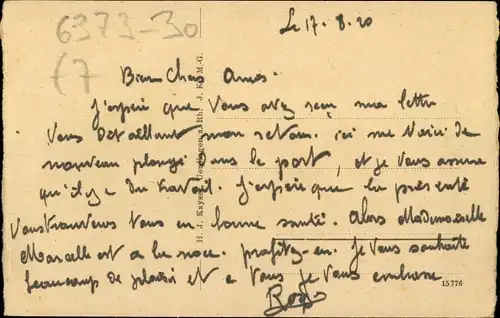 6373-30
(7
Le 17.8.20
Bien Chers Amis.
J'espère que vous avez reçu ma lettre
vous détaillant mon retour. ici me voici de
nouveau plongé dans le port, et je vous assure
qu'il y a du travail. J'espère que la présente
vous trouvera tous en bonne santé. Alors Mademoiselle
Marcelle est à la noce. profitez-en. Je vous souhaite
beaucoup de plaisir et à tous je vous embrasse
H. J. Kayser, Rh. J. K. M.-G.
15776